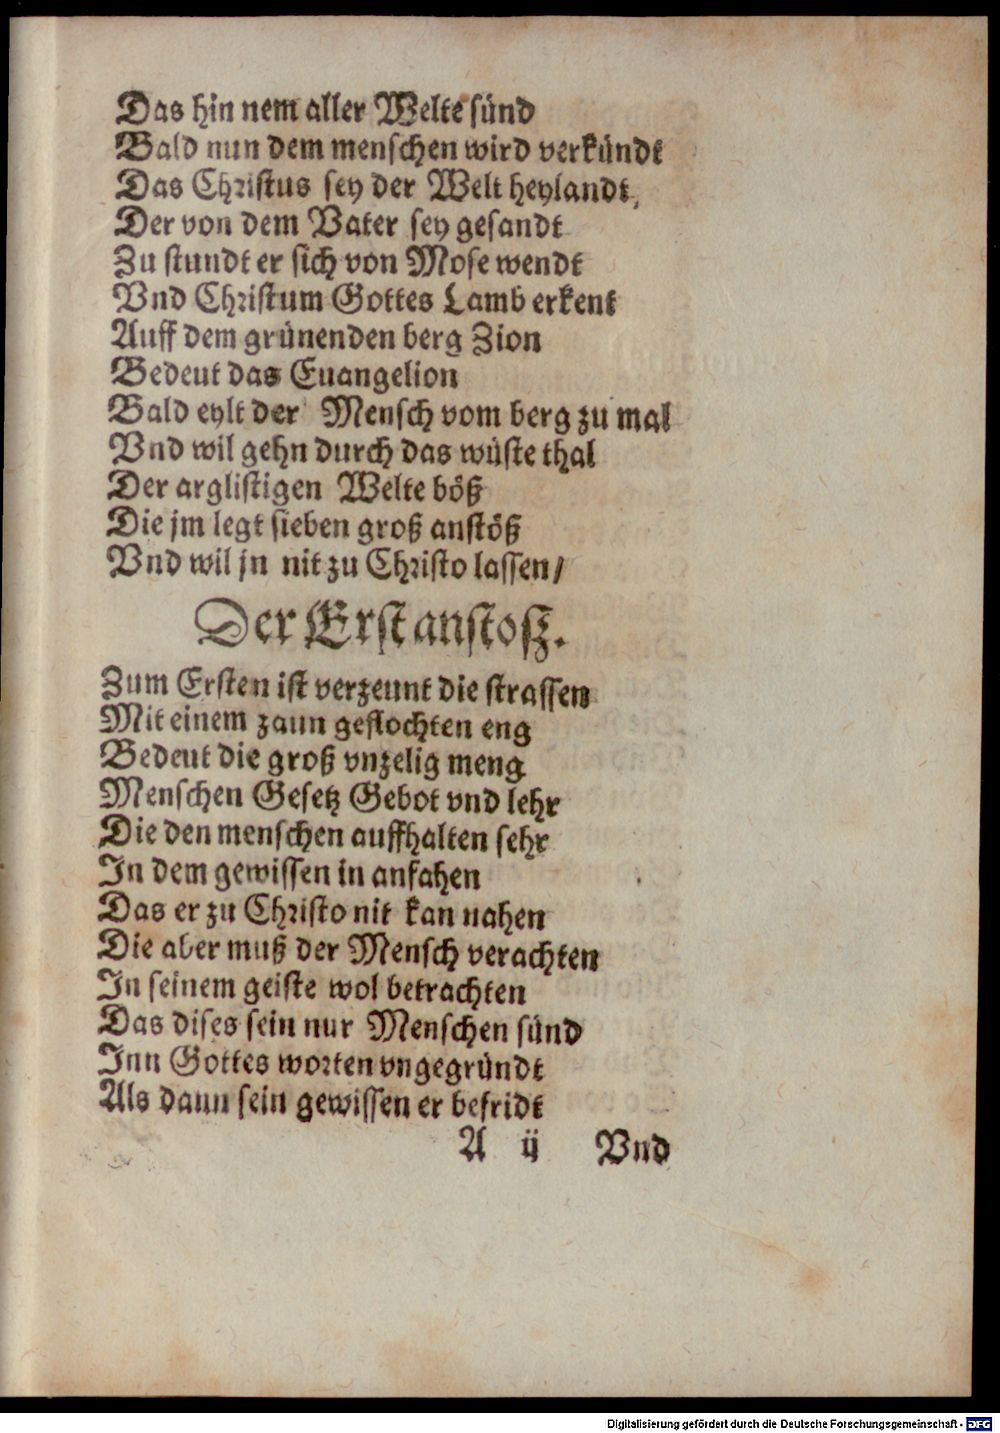 Das hin nem aller Welte sünd
Bald nun dem menschen wird verkündt
Das Christus sey der Welt heylandt,
Der von dem Vater sey gesandt
Zu stundt er sich von Mose wendt
Vnd Christum Gottes Lamb erkent
Auff dem grünenden berg Zion
Bedeut das Euangelion
Bald eylt der Mensch vom berg zu mal
Vnd wil gehn durch das wüste thal
Der arglistigen Welte böß
Die jm legt sieben groß anstöß
Vnd wil jn nit zu Christo lassen/
Der Erst anstosz.
Zum Ersten ist verzeunt die strassen
Mit einem zaun geflochten eng
Bedeut die groß vnzelig meng
Menschen Gesetz Gebot vnd lehr
Die den menschen auffhalten sehr
In dem gewissen in anfahen
Das er zu Christo nit kan nahen
Die aber muß der Mensch verachten
In seinem geiste wol betrachten
Das dises sein nur Menschen sünd
Inn Gottes worten vngegründt
Als dann sein gewissen er befridt
A ij Vnd
Digitalisierung gefördert durch die Deutsche Forschungsgemeinschaft - DFG